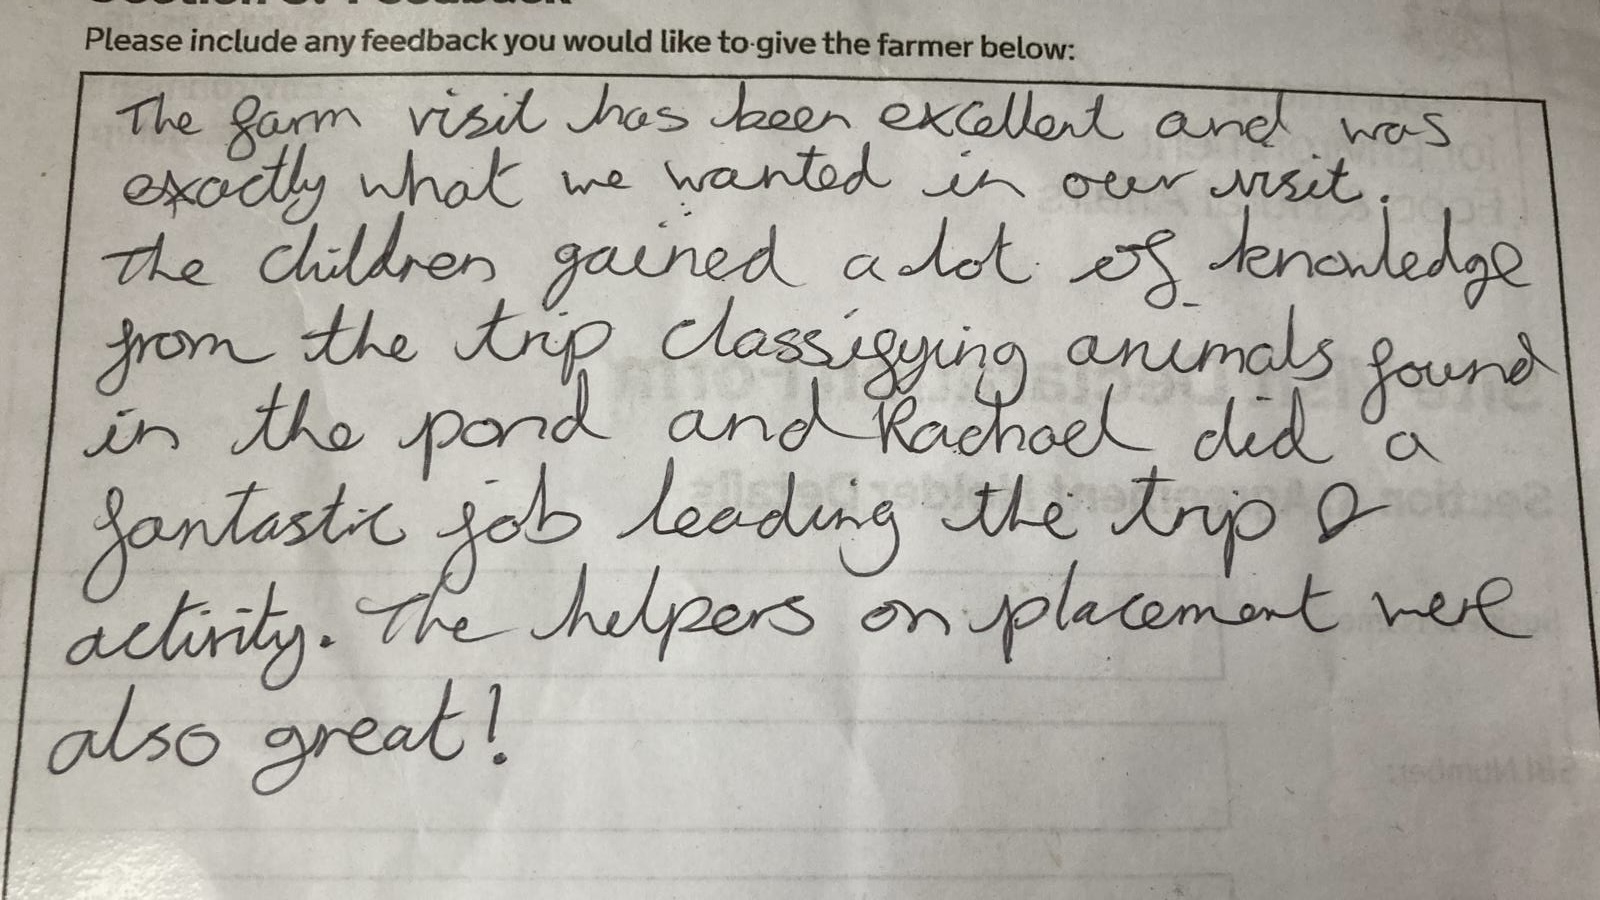 Please include any feedback you would like to give the farmer below:
The farm visit has been excellent and was
exactly what we wanted in our visit.
The children gained a lot of knowledge
from the trip classifying animals found
in the pond and Rachael did a
fantastic job leading the trip &
activity. The helpers on placement were
also great!